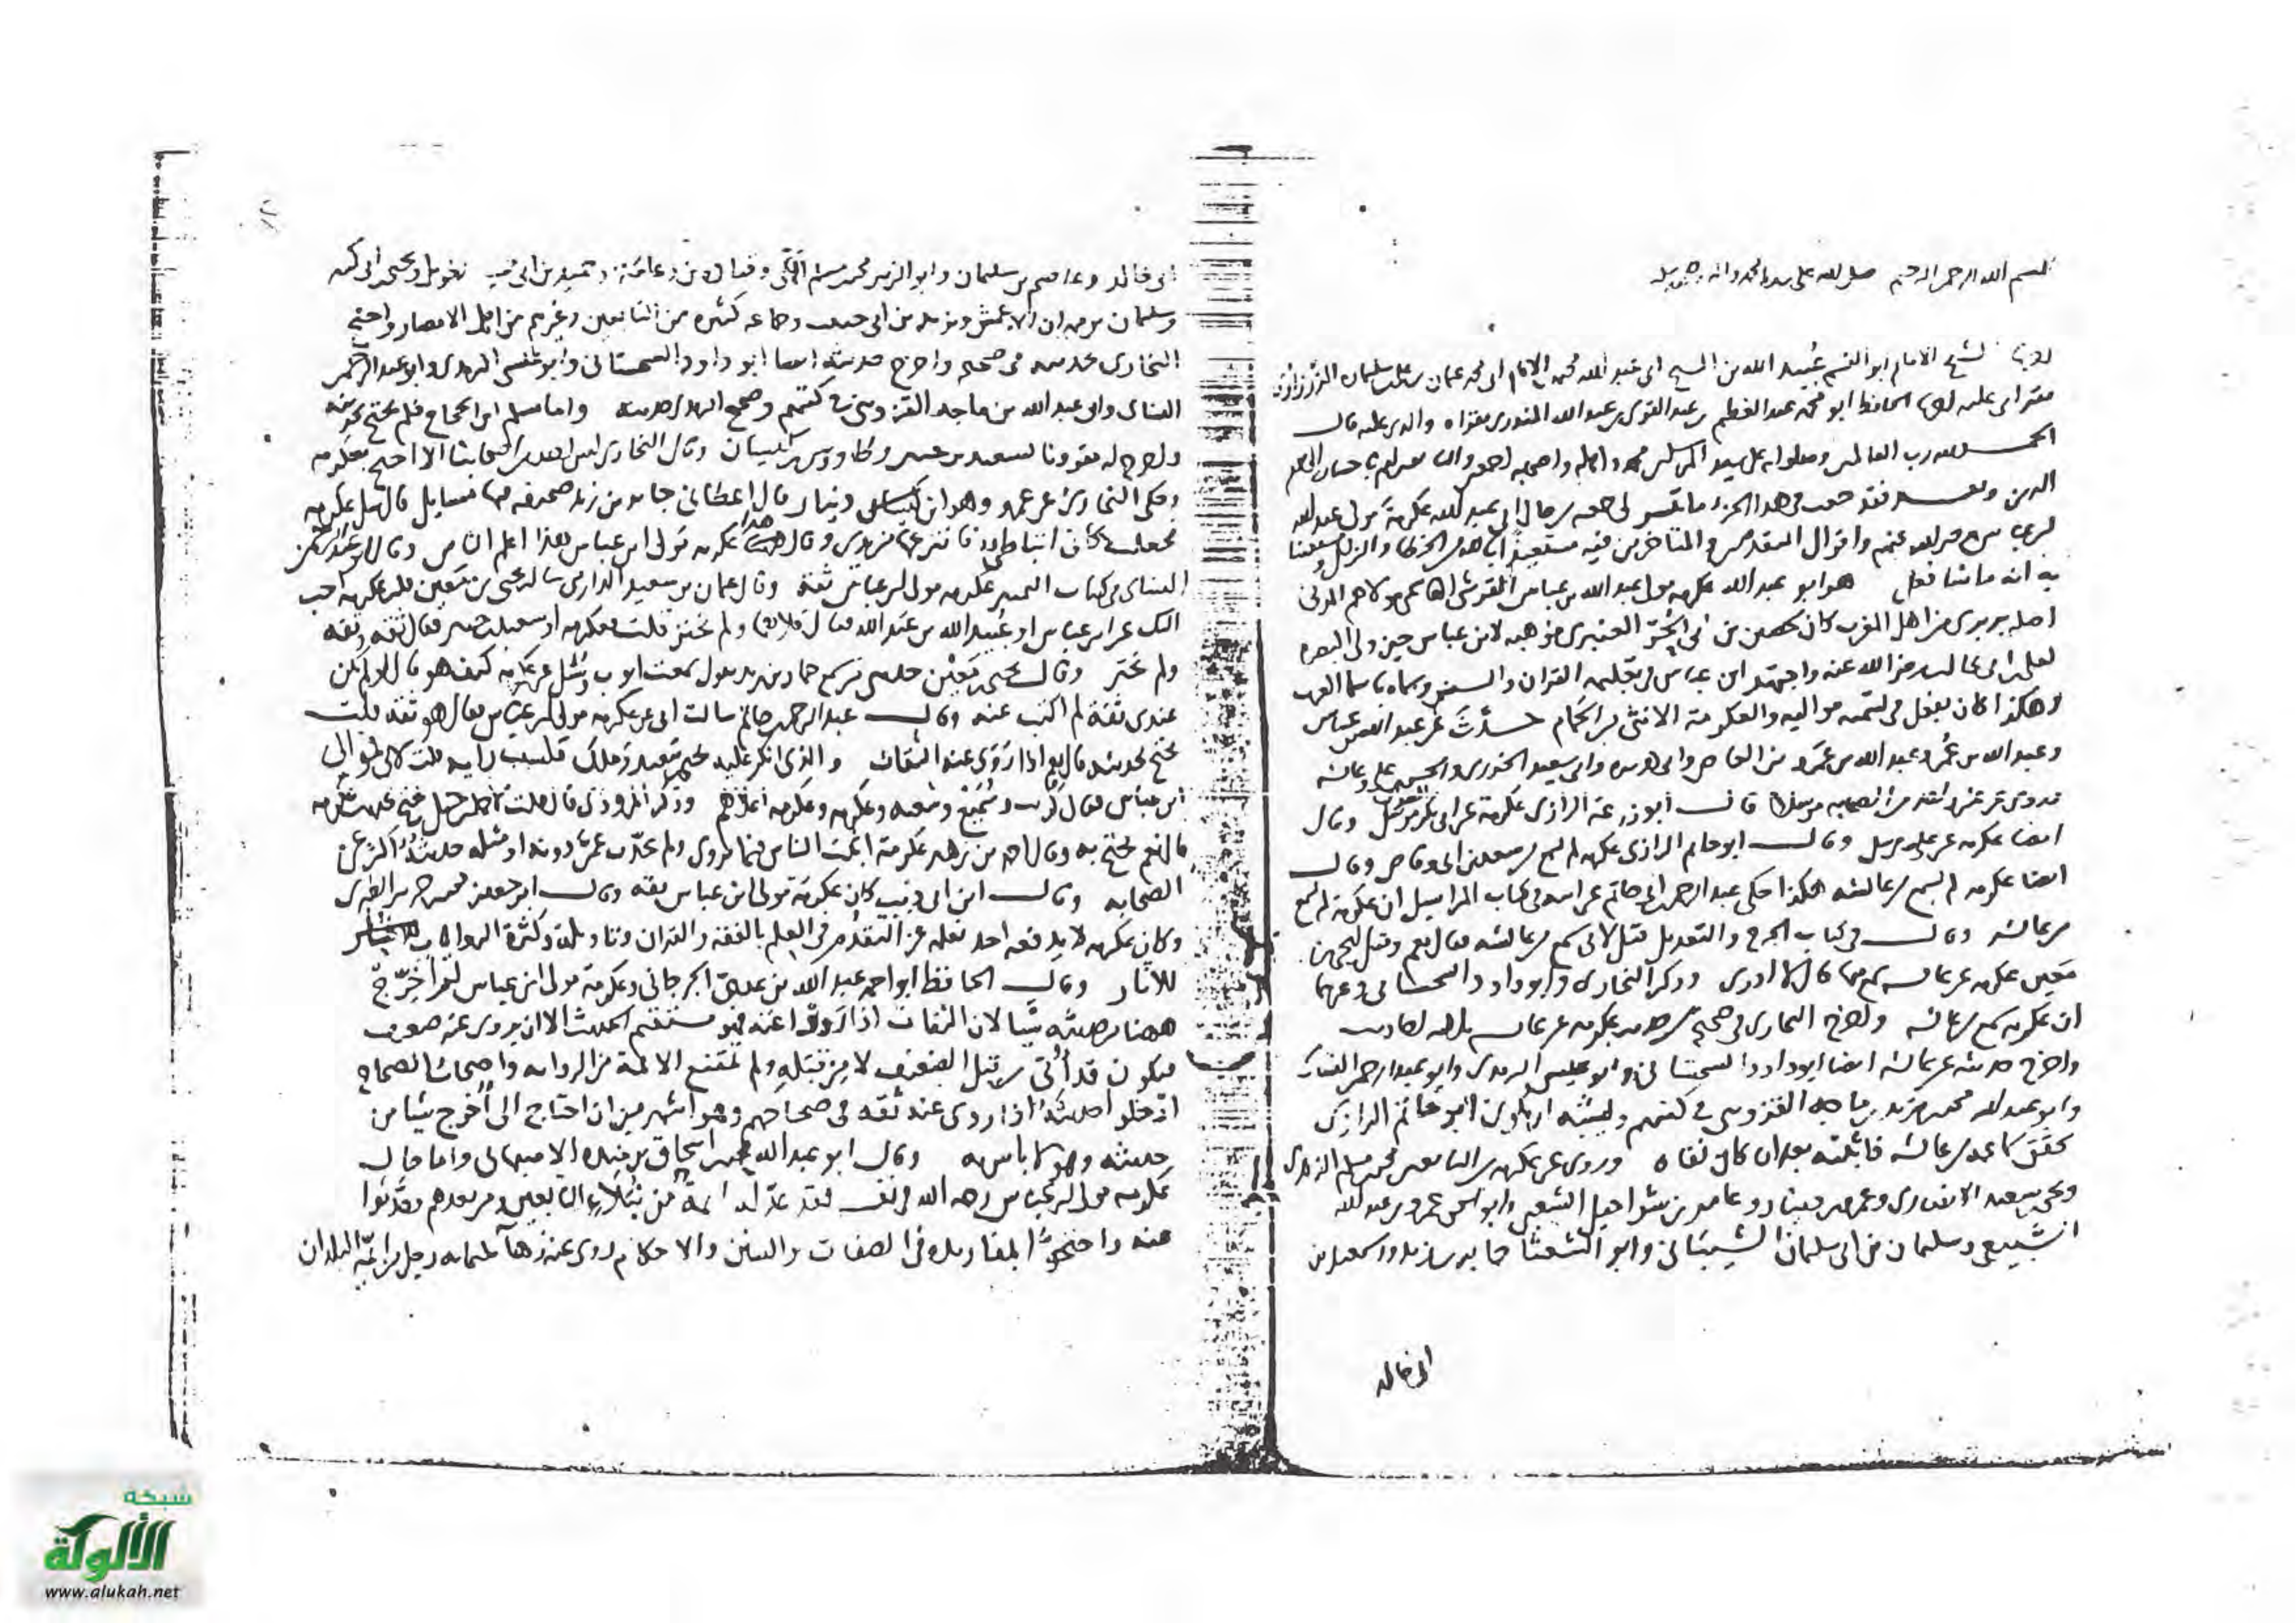 بسم الله الرحمن الرحيم صلى الله على سيدنا محمد واله وصحبه وسلم
الشيخ الامام ابو القسم عُبيد الله بن الشيخ ابى عبد الله محمد الامام ابى محمد عثمان سليمان
الحافظ ابو محمد عبد العظيم بن عبد القوى بن عبد الله المنذرى والدى عليه قال
الحمد لله رب العالمين وصلواته على سيد المرسلين محمد واله وصحبه اجمعين والتابعين لهم باحسان الى يوم
الدين وبعد فقد جمعت فى هذا الجزء ما تيسر لى جمعه من حال ابى عبد الله عكرمة مولى عبد الله
بن عباس رضى الله عنهم واقوال المتقدمين والمتاخرين فيه مستعيذًا بالله من الخطا والزلل
به انه ما شا فعل هو ابو عبد الله عكرمه مولى عبد الله بن عباس القرشى الهاشمى مولاهم المدنى
اصله بربرى من اهل المغرب كان لحصين بن ابى الحُرّ العنبرى فوهبه لابن عباس حين ولى البصره
لعلى بن ابى طالب رضى الله عنه واجتهد ابن عباس فى تعليمه القران والسنن وسماه باسما العرب
وهكذا كان يفعل فى تسميه مواليه والعكرمة الانثى من الحَمام حدّثَ عن عبد الله بن عباس
وعبد الله بن عُمر وعبد الله بن عَمرو بن العاص وابى هريره وابى سعيد الخدرى والحسين بن على وعائشه
وروى عن غير واحد من الصحابه مرسلا قال ابو زرعة الرازى عكرمة عن ابى بكر مرسل وقال
ايضا عكرمه عن على مرسل وقال ابو حاتم الرازى عكرمه لم يسمع من سعد بن ابى وقاص وقال
ايضا عكرمه لم يسمع من عائشه هكذا حكى عبد الرحمن بن ابى حاتم عن ابيه فى كتاب المراسيل ان عكرمة لم يسمع
من عائشه وقال فى كتاب الجرح والتعديل قيل لابى سمع من عائشه فقال نعم وقيل ليحيى بن
مَعين عكرمه عن عائشه سمع منها قال لا ادرى وذكر البخارى وابو داود السجستانى وغيرهما
ان عكرمه سمع من عائشه واخرج البخارى فى صحيحه من حديث عكرمه عن عائشه ثلاثه احاديث
واخرج حديثه عن عائشه ايضا ابو داود السجستانى وابو عيسى الترمذى وابو عبد الرحمن النسائى
وابو عبد الله محمد بن يزيد بن ماجه القزوينى فى كتبهم ويشبه ان يكون ابو حاتم الرازى
تحقق سماعه من عائشه فاثبته بعد ان كان نفاه وروى عن عكرمه من التابعين محمد بن مسلم الزهرى
ويحيى بن سعيد الانصارى وعمرو بن دينار وعامر بن شراحيل الشعبى وابو اسحق عمرو بن عبد الله
السَّبيعى وسليمان بن ابى سليمان الشيبانى وابو الشعثا جابر بن زيد واسمعيل بن
ابى خالد
ابى خالد وعاصم بن سليمان وابو الزبير محمد بن مسلم المكى وقتاده بن دعامة وحميد بن ابى حميد الطويل ويحيى بن ابى كثير
وسليمان بن مهران الاعمش ويزيد بن ابى حبيب وجماعه كثيره من التابعين وغيرهم من اهل الامصار واحتج
البخارى بحديثه فى صحيحه واخرج حديثه ايضا ابو داود السجستانى وابو عيسى الترمذى وابو عبد الرحمن
النسائى وابو عبد الله بن ماجه القزوينى فى كتبهم وصحح الترمذى حديثه واما مسلم بن الحجاج فلم يحتج بحديثه
واخرج له مقرونا بسعيد بن جبير وطاووس بن كيسان وقال البخارى ليس احد من اصحابنا الا احتج بعكرمه
وحكى البخارى عن عمرو وهو ابن دينار قال اعطانى جابر بن زيد صحيفه فيها مسايل قال سل عكرمه
فجعلت كانى اتباطى فانتزعها من يدى وقال هذا عكرمه مولى ابن عباس هذا اعلم الناس وقال ابو عبد الرحمن
النسائى فى كتاب التمييز عكرمه مولى ابن عباس ثقة وقال عثمان بن سعيد الدارمى سالت يحيى بن مَعين قلت عكرمه احب
اليك عن ابن عباس او عُبيد الله بن عبد الله فقال كلاهما ولم يختر قلت فعكرمه او سعيد بن جبير فقال ثقه وثقه
ولم يختر وقال يحيى بن مَعين حدثنى من سمع حماد بن زيد يقول سمعت ايوب وسُئل عن عكرمه كيف هو قال لو لم يكن
عندى ثقة لم اكتب عنه وقال عبد الرحمن بن ابى حاتم سالت ابى عن عكرمه مولى ابن عباس فقال هو ثقه قلت
يحتج بحديثه قال نعم اذا رَوى عنه الثقات والذى انكر عليه يحيى بن سعيد ومالك فلسبب رايه قلت لابى فموالى
ابن عباس فقال كُريب وسُميع وشعبه وعكرمه وعكرمه اعلاهم وذكر المروذى قال قلت لاحمد بن حنبل يحتج بحديث عكرمه
قال نعم يحتج به وقال احمد بن زهير عكرمة اثبت الناس فيما يروى ولم يحدّث عمن دونه او مثله حديثُه اكثره عن
الصحابه وقال ابن ابى ذيب كان عكرمة مولى ابن عباس ثقه وقال ابو جعفر محمد بن جرير الطبرى
وكان عكرمه لا يدفعه احد نعلمه عن التقدُّم فى العلم بالفقه والقران وتاويله وكثرة الروايه
للاثار وقال الحافظ ابو احمد عبد الله بن عدى الجرجانى وعكرمة مولى ابن عباس لم اخرّج
ههنا من حديثه شيا لان الثقات اذا رووا عنه فهو مستقيم الحديث الا ان يروى عنه ضعيف
فيكون قد أُتى من قبل الضعيف لا من قبله ولم تمتنع الائمة من الروايه واصحاب الصحاح
ادخلوا احاديثه اذا روى عنه ثقه فى صحاحهم وهو اشهر من ان احتاج الى ان اخرج شيا من
حديثه وهو لا باس به وقال ابو عبد الله محمد بن اسحاق بن منده الاصبهانى واما حال
عكرمه مولى ابن عباس رحمه الله فى نفسه فقد عدّله ائمة من نبلاء التابعين ومن بعدهم وحدثوا
عنه واحتجوا بمفاريده فى الصفات والسنن والاحكام روى عنه زهآ ثلثمايه رجل من ائمّة البلدان
شبكة
الألوكة
www.alukah.net